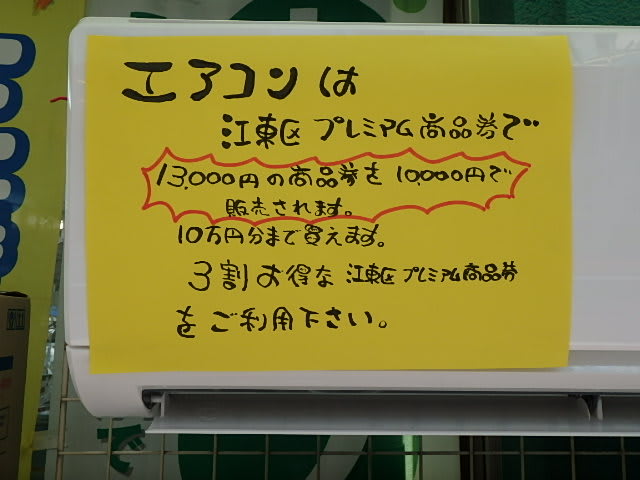 エアコンは
江東区プレミアム商品券で
13,000円の商品券を10,000円で
販売されます。
10万円分まで買えます。
3割お得な江東区プレミアム商品券
をご利用下さい。